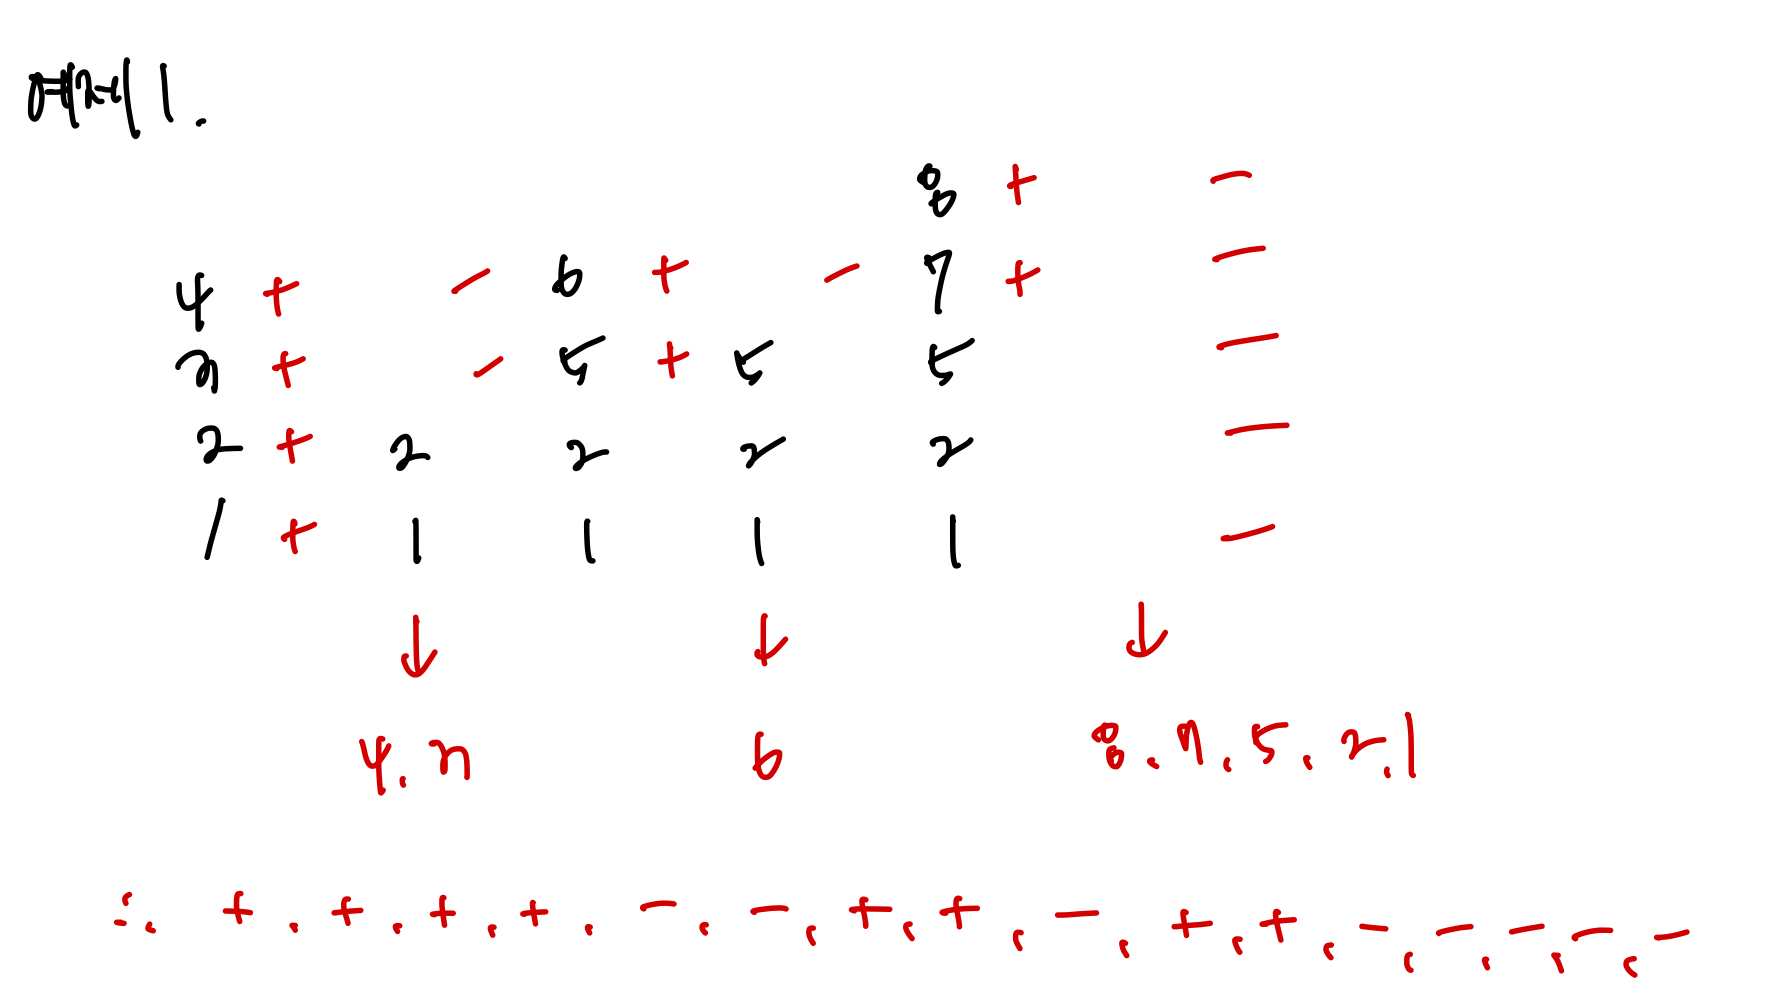 1.
8 + −
4 + − 6 + − 7 + −
3 + − 5 + 5 5 −
2 + 2 2 2 2 −
1 + 1 1 1 1 −
↓ ↓ ↓
4, 3 6 8, 7, 5, 2, 1
∴ +, +, +, +, −, −, +, +, −, +, +, −, −, −, −, −